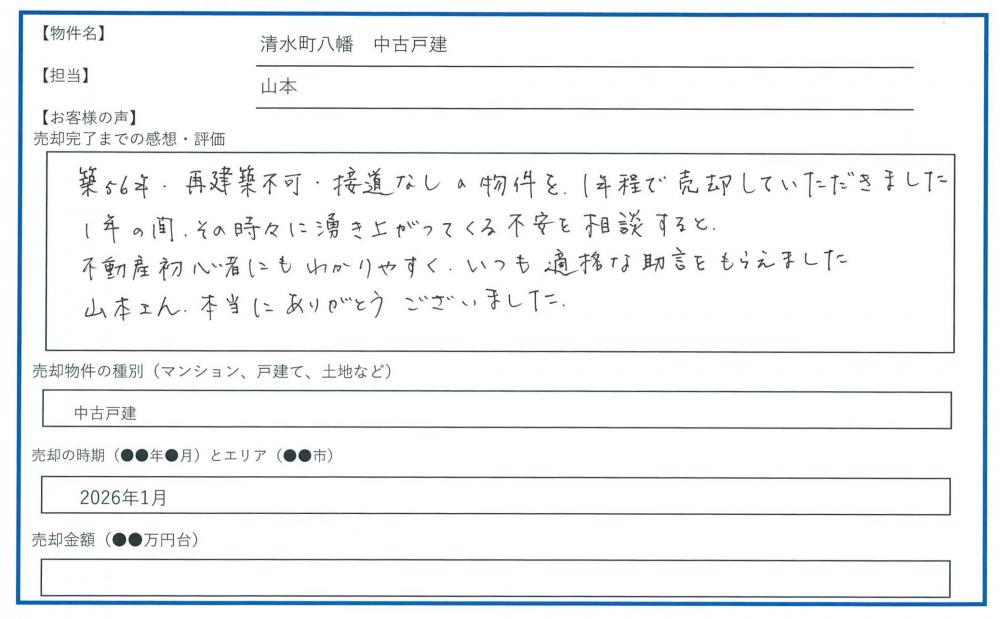 【物件名】
清水町八幡 中古戸建
【担当】
山本
【お客様の声】
売却完了までの感想・評価
築56年・再建築不可・接道なしの物件を、1年程で売却していただきました
1年の間、その時々に湧き上がってくる不安を相談すると、
不動産初心者にもわかりやすく、いつも適格な助言をもらえました
山本さん、本当にありがとうございました。
売却物件の種別(マンション、戸建て、土地など)
中古戸建
売却の時期(●●年●月)とエリア(●●市)
2026年1月
売却金額(●●万円台)